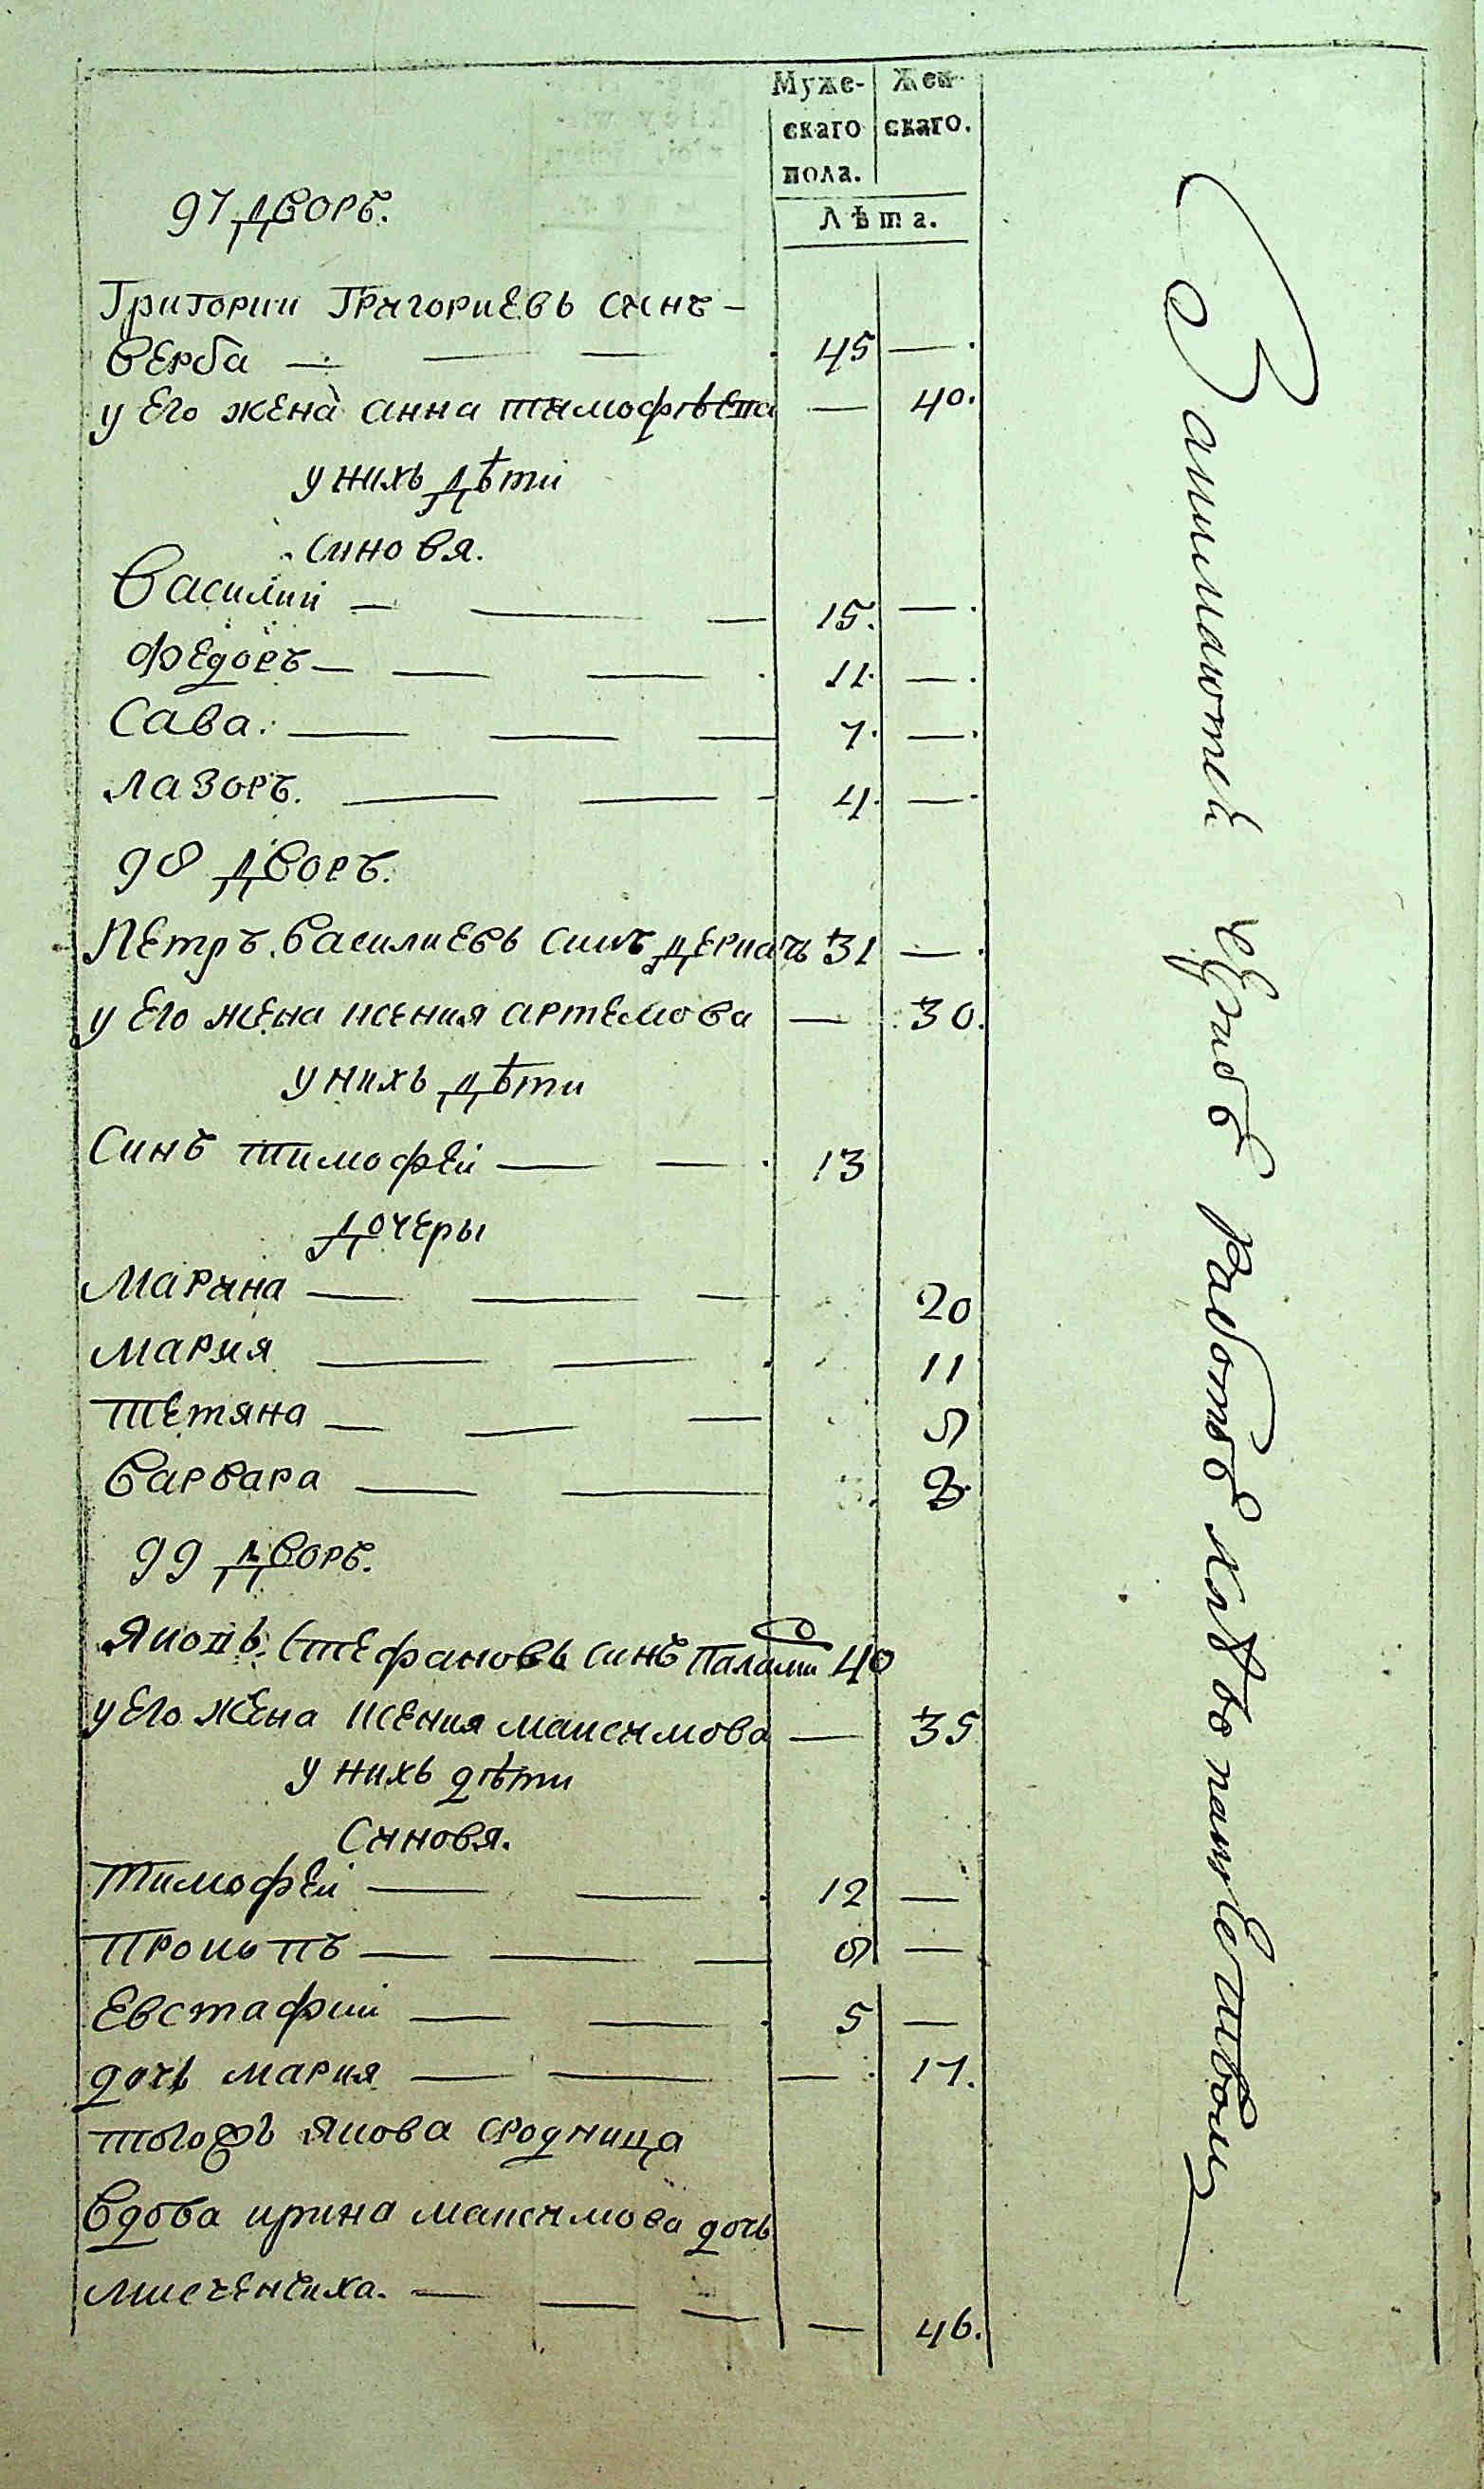 Муже-
скаго
пола.
Жен-
скаго.
Лѣта.
97 дворъ.
Григории Григориевь синъ —
верба — — — 45 — .
у его жена анна тимофѣева — 40.
у нихь дѣти
синовя.
Василий — — — 15. — .
Федоръ — — — 11. — .
Сава. — — — 7. — .
лазоръ. — — — 4. — .
98 дворъ.
Петръ Василиевь синъ деркачъ 31 — .
у его жена ксения артемова — 30.
у нихь дѣти
Синъ тимофей — — 13
дочеры
Марина — — — 20
мария — — 11
тетяна — — —
варвара — —
99 дворъ.
Яковь Стефановь синъ 40
у его жена ксения максимова — 35
у нихь дѣти
Синовя.
тимофей — — 12 —
прокопъ — — — —
Евстафии — — 5 —
дочь мария — — — 17.
тогожъ якова сродница
Вдова ирина максимова дочь
— — — — 46.
Занимаются работою хлѣбопашества